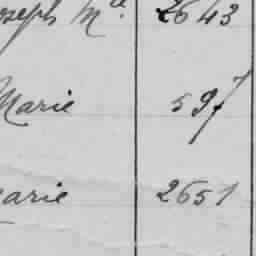 oseph Mce 2643
Marie 597
arie 2651